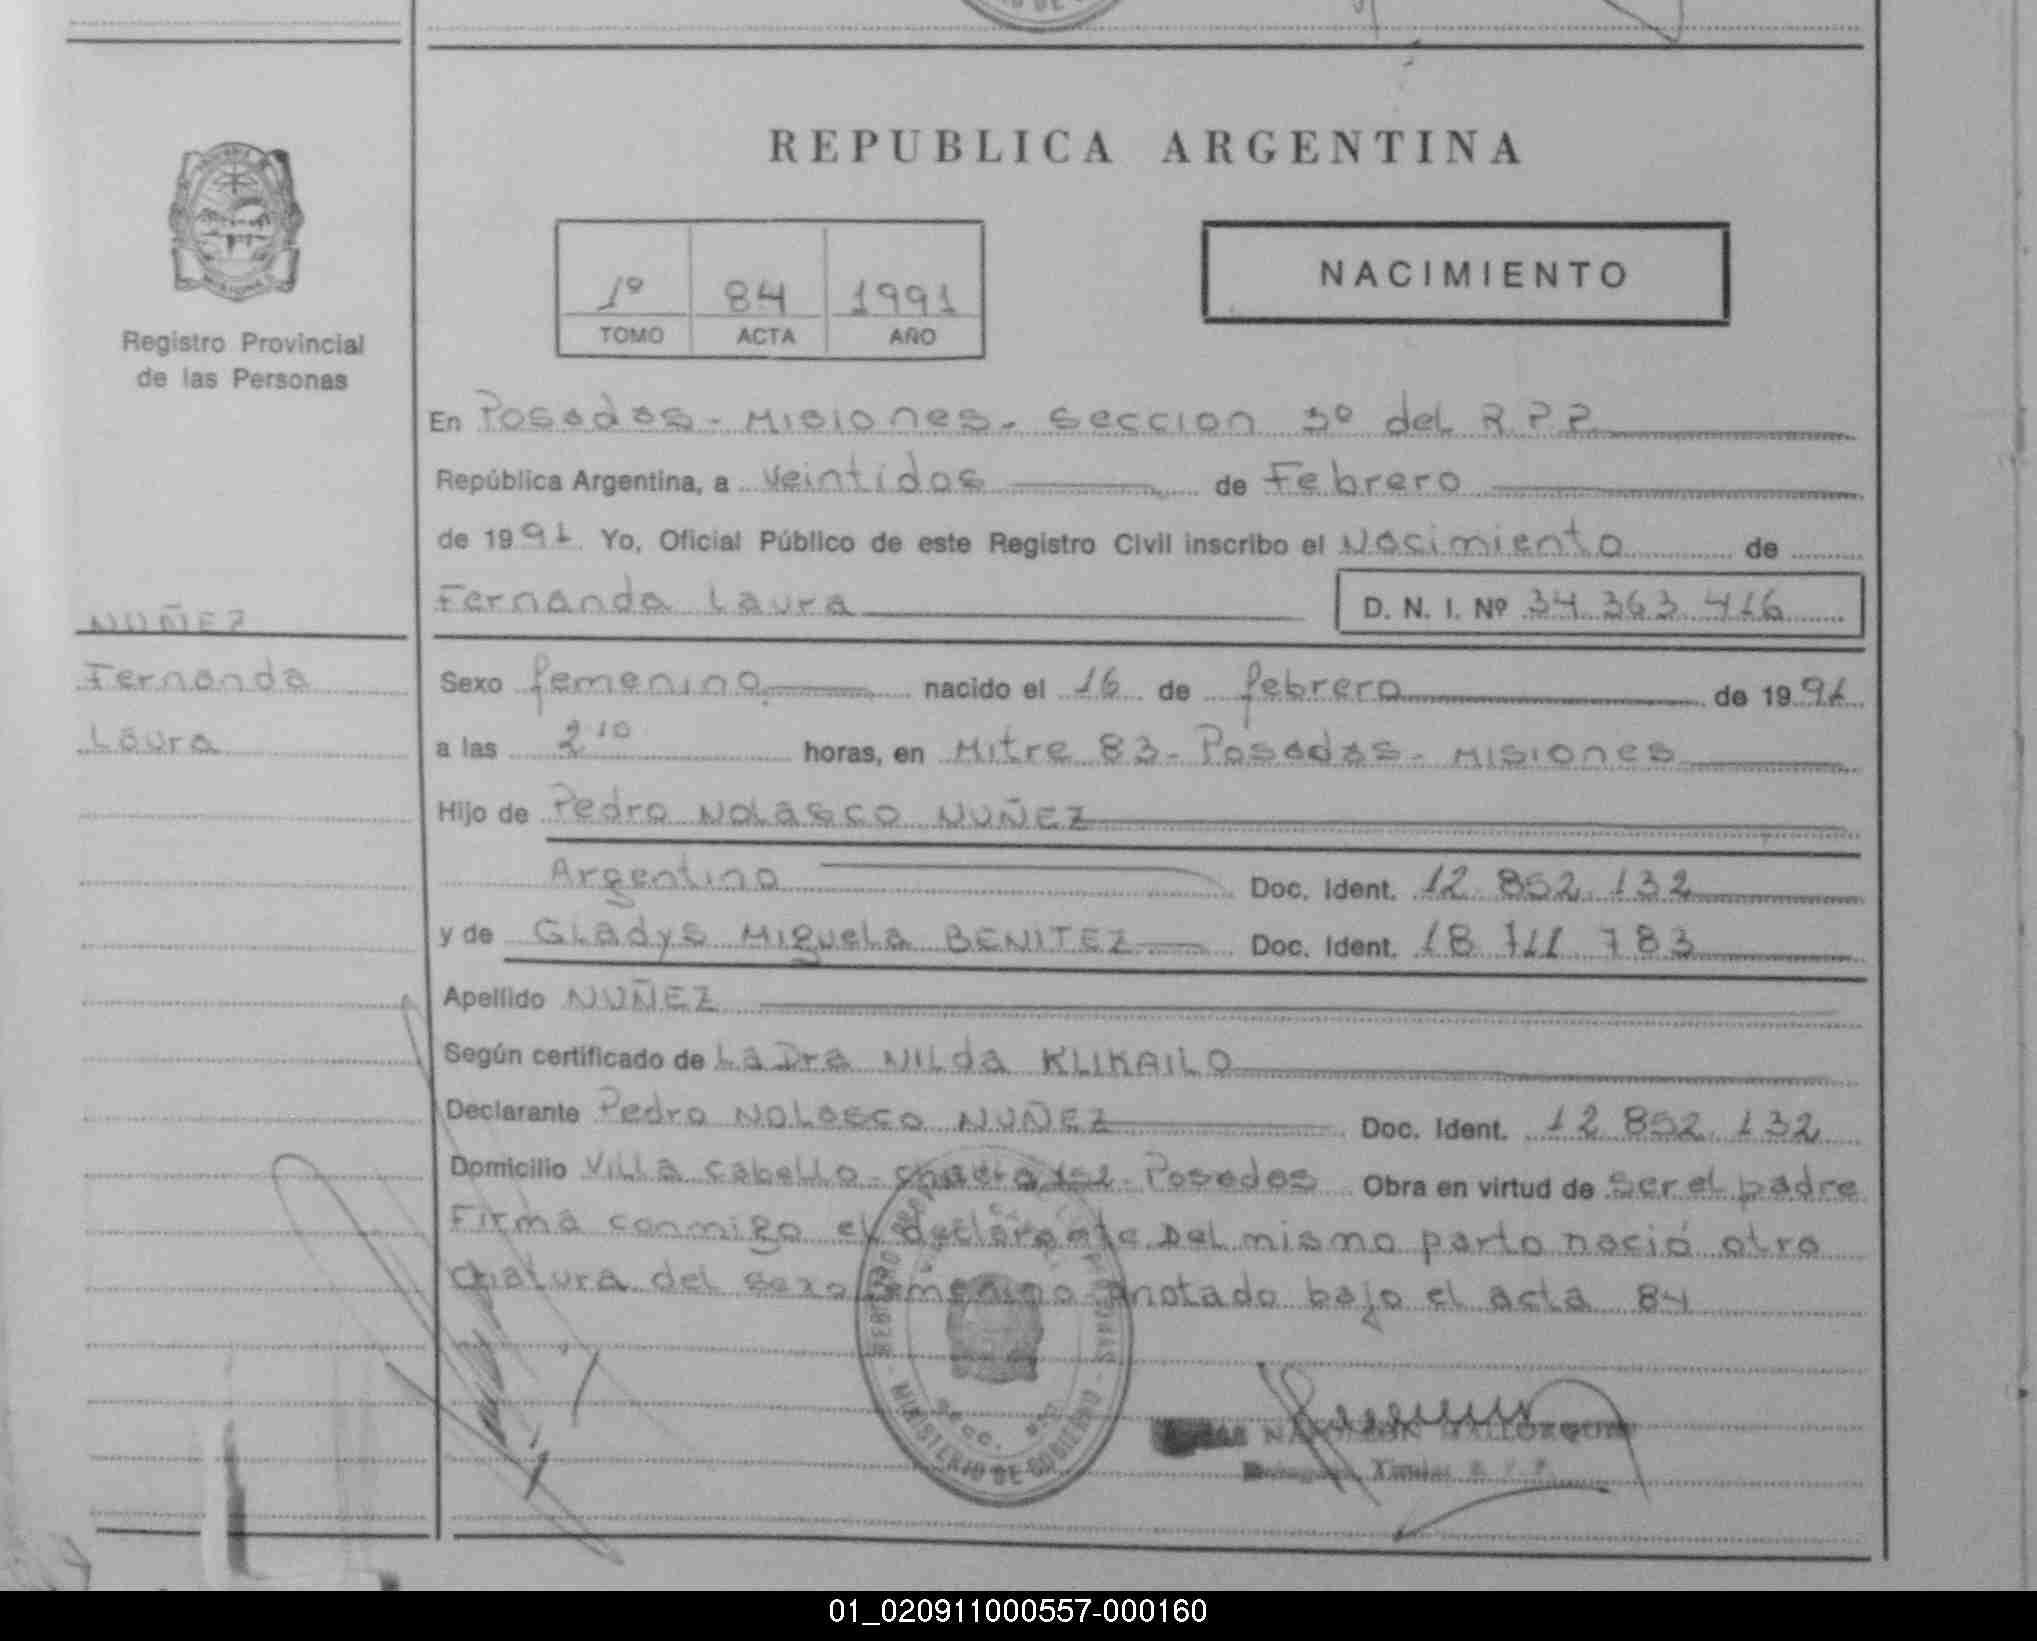 REPUBLICA ARGENTINA
Registro Provincial
de las Personas
1º 84 1991
TOMO ACTA AÑO
NACIMIENTO
En Posadas - Misiones - Seccion 3º del R.P.P.
República Argentina, a veintidos de Febrero
de 1991 Yo, Oficial Público de este Registro Civil inscribo el Nacimiento de
Fernanda Laura D. N. I. Nº 34.363.416
NUÑEZ
Fernanda
Laura
Sexo femenino nacido el 16 de febrero de 1991
a las 2 10 horas, en Mitre 83 - Posadas - Misiones
Hijo de Pedro Nolasco NUÑEZ
Argentino Doc. Ident. 12.852.132
y de Gladys Miguela BENITEZ Doc. Ident. 18 711 783
Apellido NUÑEZ
Según certificado de La Dra Nilda KLIKAILO
Declarante Pedro Nolasco NUÑEZ Doc. Ident. 12 852 132
Domicilio Villa Cabello - chacra 152 - Posadas Obra en virtud de ser el padre
Firma conmigo el declarante Del mismo parto nació otra
criatura del sexo femenino anotado bajo el acta 84
MINISTERIO DE GOBIERNO
01_020911000557-000160